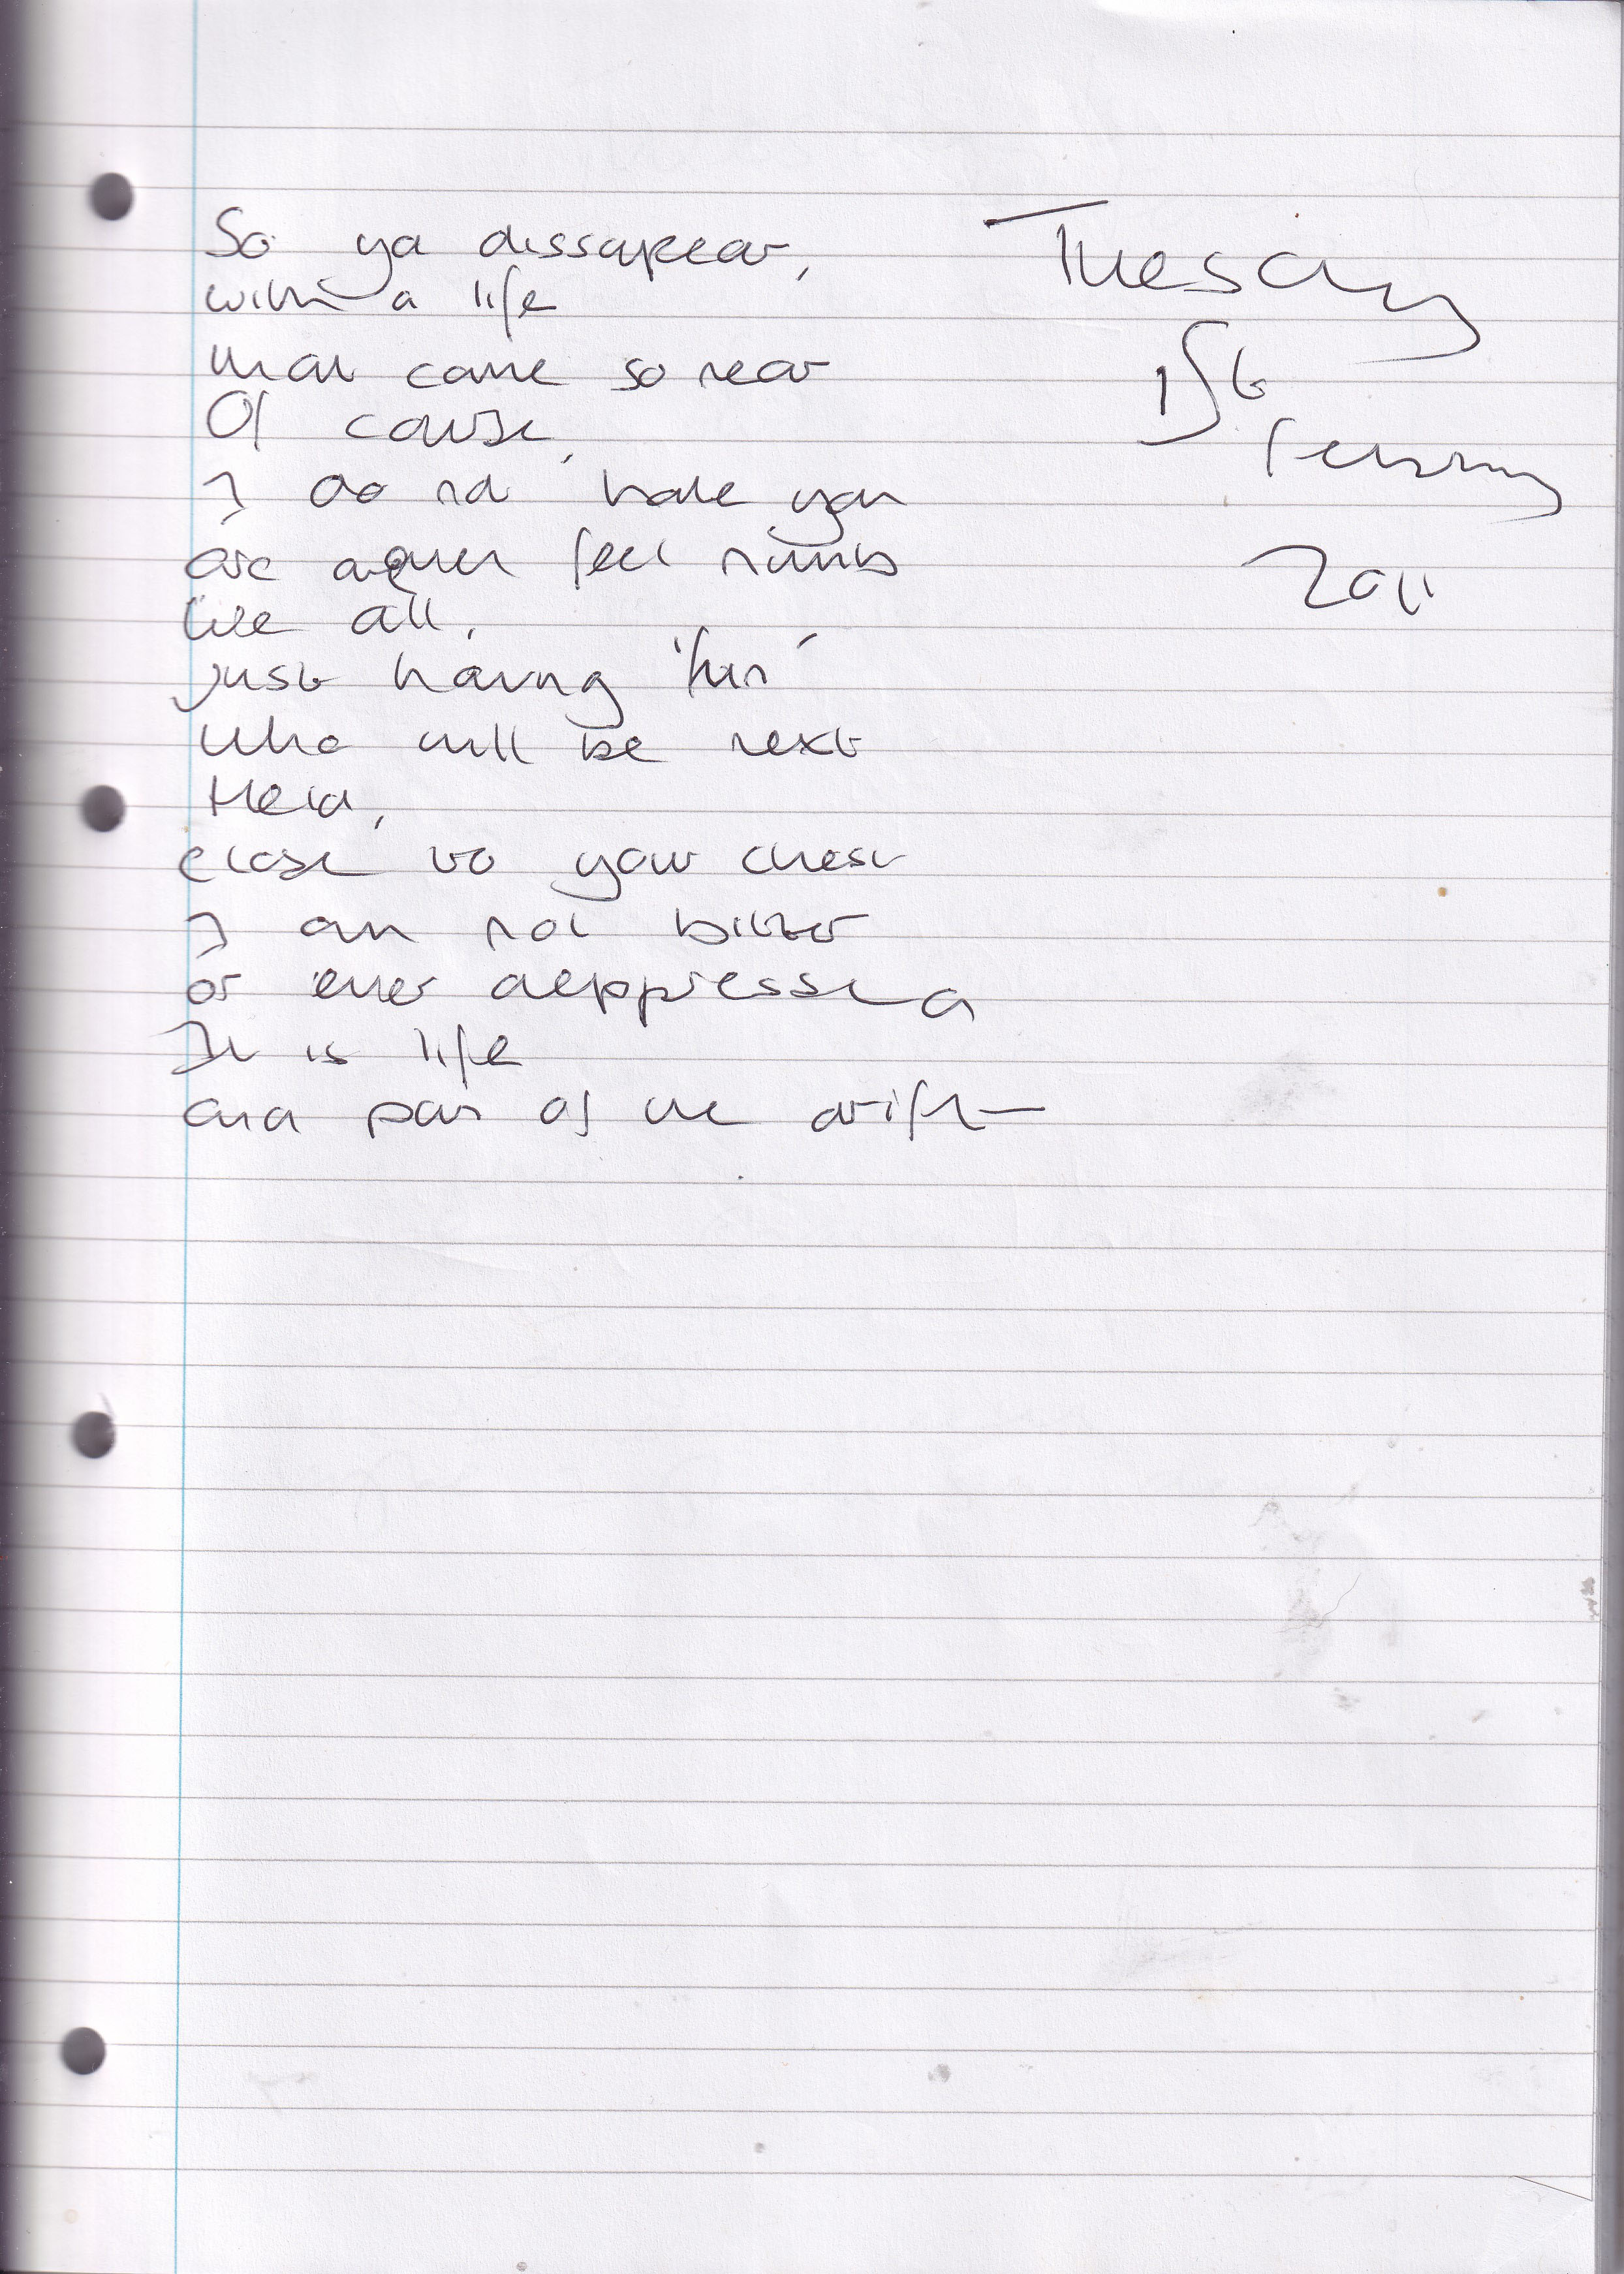 So ya dissapear,
with a life
that came so near
Of cause,
I do not hate you
or even feel numb
like all,
just having 'fun'
who will be next
Held,
close to your chest
I am not bitter
or ever deppressed
It is life
and part of the drift
Tuesday
1st
February
2011